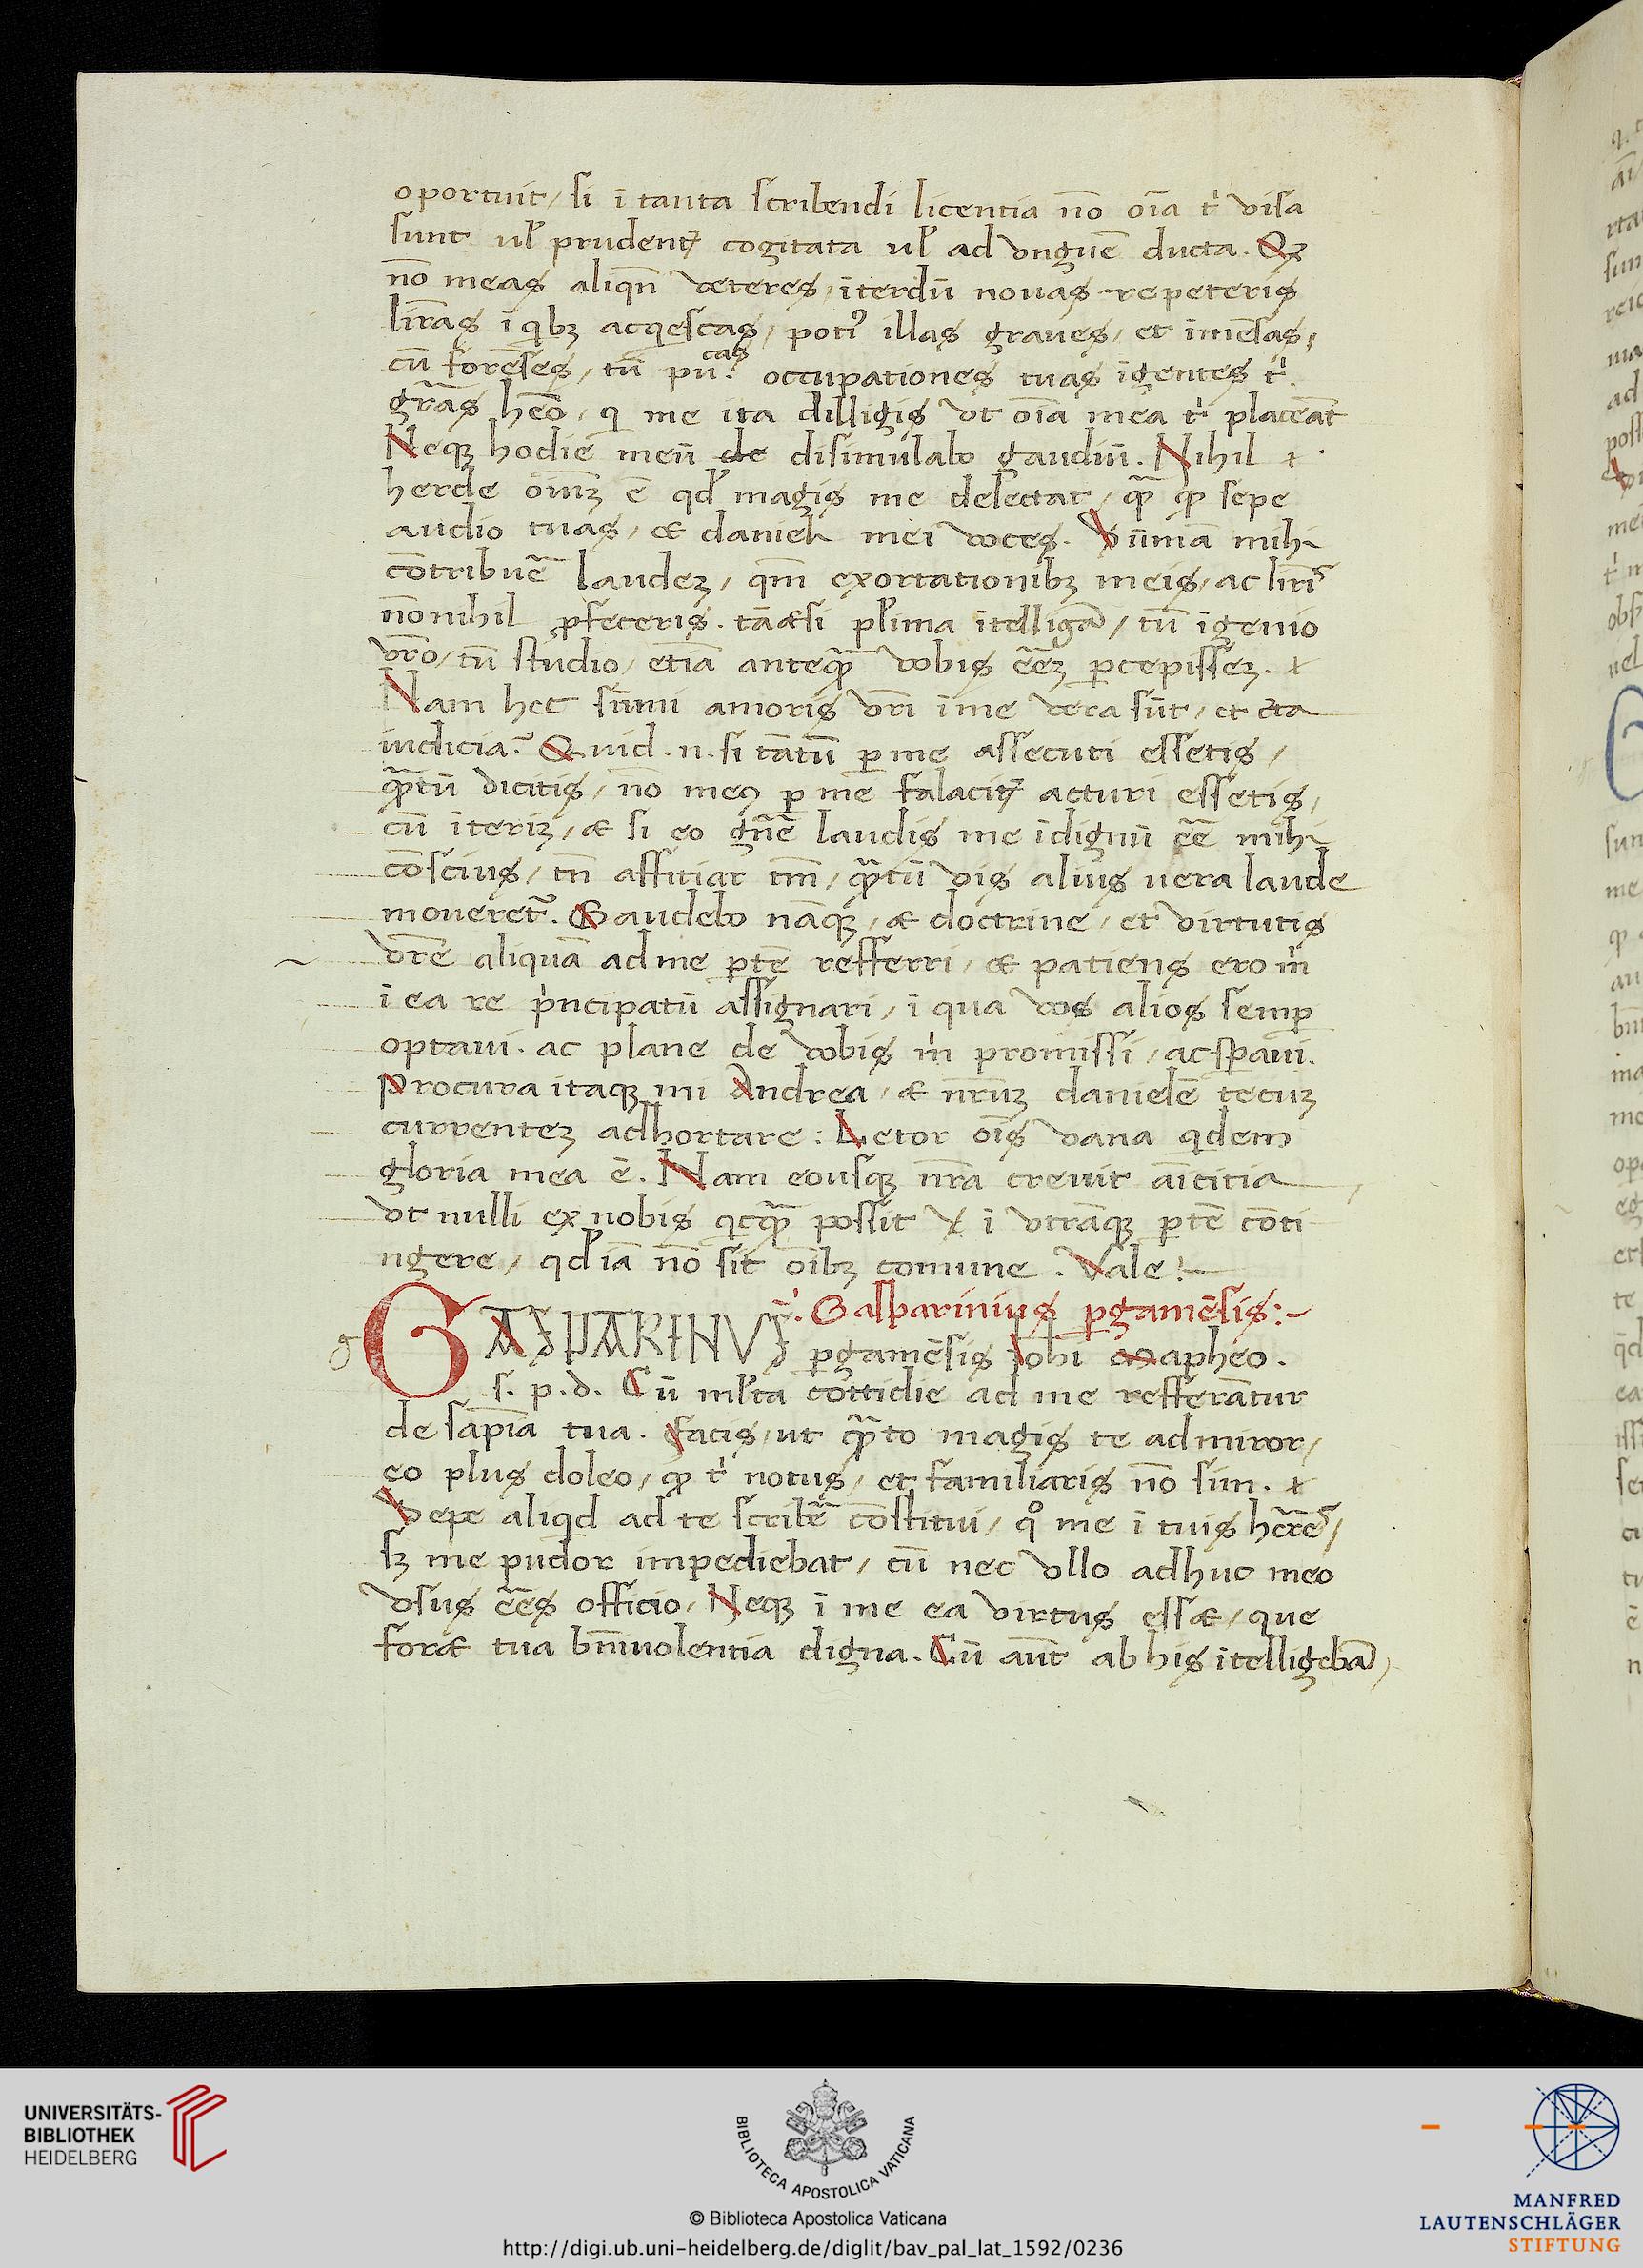 oportuit / si ī tanta scribendi licentia nō oīa t' visa
sunt ul' prudent' cogitata ul' ad vnguē ducta. Qꝫ
nō meas aliqn̄ veteres, īterdū nouas repeteris
lr̄as ī qbꝫ acqescas, poti' illas graues, et īmēsas,
cū forēses, tū pu.cas occupationes tuas īgentes t'.
gr̄as hēo, q me ita dilligis vt oīa mea t' placeāt
Neqꝫ hodie meū de disimulabo gaudiū. Nihil
hercle oīuꝫ ē qd' magis me delectat, qꝫ̄ sepe
audio tuas, et danieli mei voces. Sūmā mihi
cōtribuē laudeꝫ, qm̄ exortationibꝫ meis, ac lr̄is
nōnihil ꝓfeceris. tāetsi pl'ima ītelligā, tū īgenio
vr̄o, tū studio, etiā anteqꝫ̄ vobis eēꝫ ꝑcepisseꝫ.
Nam hec sūmi amoris vr̄i ī me vera sūt, et c̄ta
iudicia. Quid .n. si tātū ꝑ me assecuti essetis,
qꝫ̄tū dicitis, nō meꝯ ꝑ me falacit' acturi essetis,
cū īteriꝫ, et si eo gn̄e laudis me īdignū eē mihi
cōscius, tn̄ afficiar tm̄, qꝫ̄tū vis alius uera laude
moueret'. Gaudebo nāqꝫ, et doctrine, et virtutis
vr̄e aliquā ad me ꝑtē refferri, et patiens ero m'
ī ea re p'ncipatū assignari, ī qua vos alios semꝑ
optaui. ac plane de vobis m' promissi, ac sꝑaui.
Procura itaqꝫ mi Andrea, et nr̄uꝫ danielē tecuꝫ
currenteꝫ adhortare: Letor oīs vana qdem
gloria mea ē. Nam eousqꝫ nr̄a creuit aīcitia
vt nulli ex nobis qcqꝫ̄ possit ī vtrāqꝫ ꝑtē cōti
ngere, qd' iā nō sit oībꝫ comune. Vale:
Gasparinius ꝑgamēsis:
g GASPARINVS ꝑgamēsis Iohi Mapheo.
s. p. d. Cū ml'ta cottidie ad me refferātur
de sapīa tua. Facis, ut qꝫ̄to magis te admiror,
eo plus doleo, ꝙ t' notus, et familiaris nō sim.
Sepe aliqd ad te scribē cōstitui, qo me ī tuis hr̄es,
sꝫ me pudor impediebat, cū nec vllo adhuc meo
vsus eēs officio, Neqꝫ ī me ea virtus esset, que
foret tua bn̄iuolentia digna. Cū aūt ab his ītelligebā,
UNIVERSITÄTS-
BIBLIOTHEK
HEIDELBERG
BIBLIOTECA APOSTOLICA VATICANA
© Biblioteca Apostolica Vaticana
http://digi.ub.uni-heidelberg.de/diglit/bav_pal_lat_1592/0236
MANFRED
LAUTENSCHLÄGER
STIFTUNG